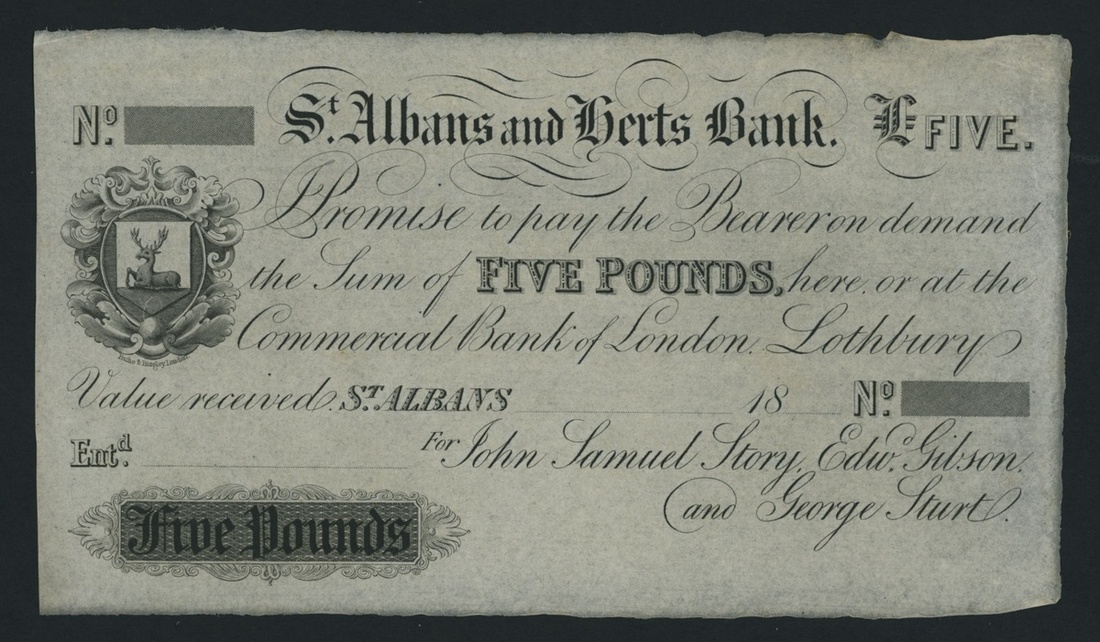 No. St. Albans and Herts Bank. £FIVE.
I Promise to pay the Bearer on demand
the Sum of FIVE POUNDS, here, or at the
Commercial Bank of London, Lothbury
Value received. ST. ALBANS 18 No.
Entd. For John Samuel Story, Edwd. Gibson.
and George Sturt.
Five Pounds